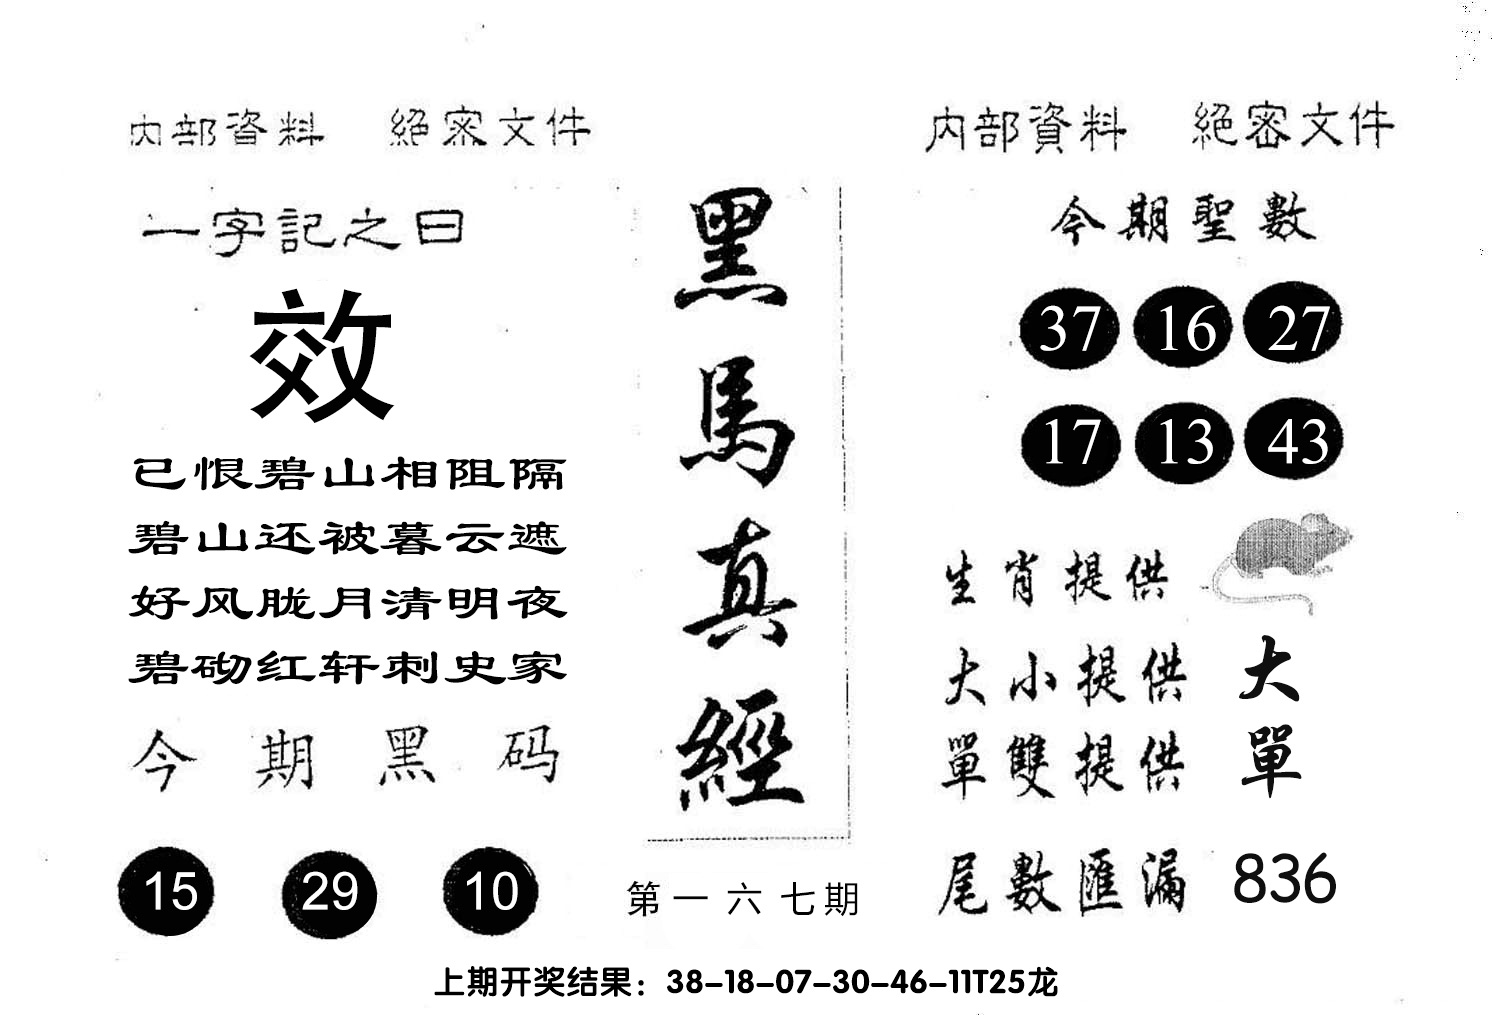 内部資料 絕密文件
一字記之曰
效
已恨碧山相阻隔
碧山还被暮云遮
好风胧月清明夜
碧砌红轩刺史家
今期黑码
15 29 10
黑馬真經
第一六七期
内部資料 絕密文件
今期聖數
37 16 27
17 13 43
生肖提供
大小提供 大
單雙提供 單
尾數匯漏 836
上期开奖结果：38-18-07-30-46-11T25龙